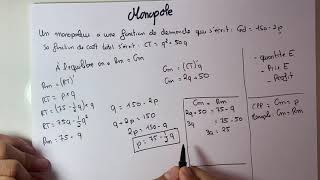 Monopole
Un monopoleur a une fonction de demande qui s'écrit: Qd = 150 - 2p
Sa fonction de coût total s'écrit: CT = q² + 50q
À l'équilibre on a Rm = Cm
Rm = (RT)'
RT = p × q
RT = (75 - 1/2 q) × q
RT = 75q - 1/2 q²
Rm = 75 - q
q = 150 - 2p
q + 2p = 150
2p = 150 - q
p = 75 - 1/2 q
Cm = (CT)'q
Cm = 2q + 50
Cm = Rm
2q + 50 = 75 - q
3q = 75 - 50
3q = 25
- quantité E
- Prix E
- Profit
CPP = Cm = p
Cm = Rm